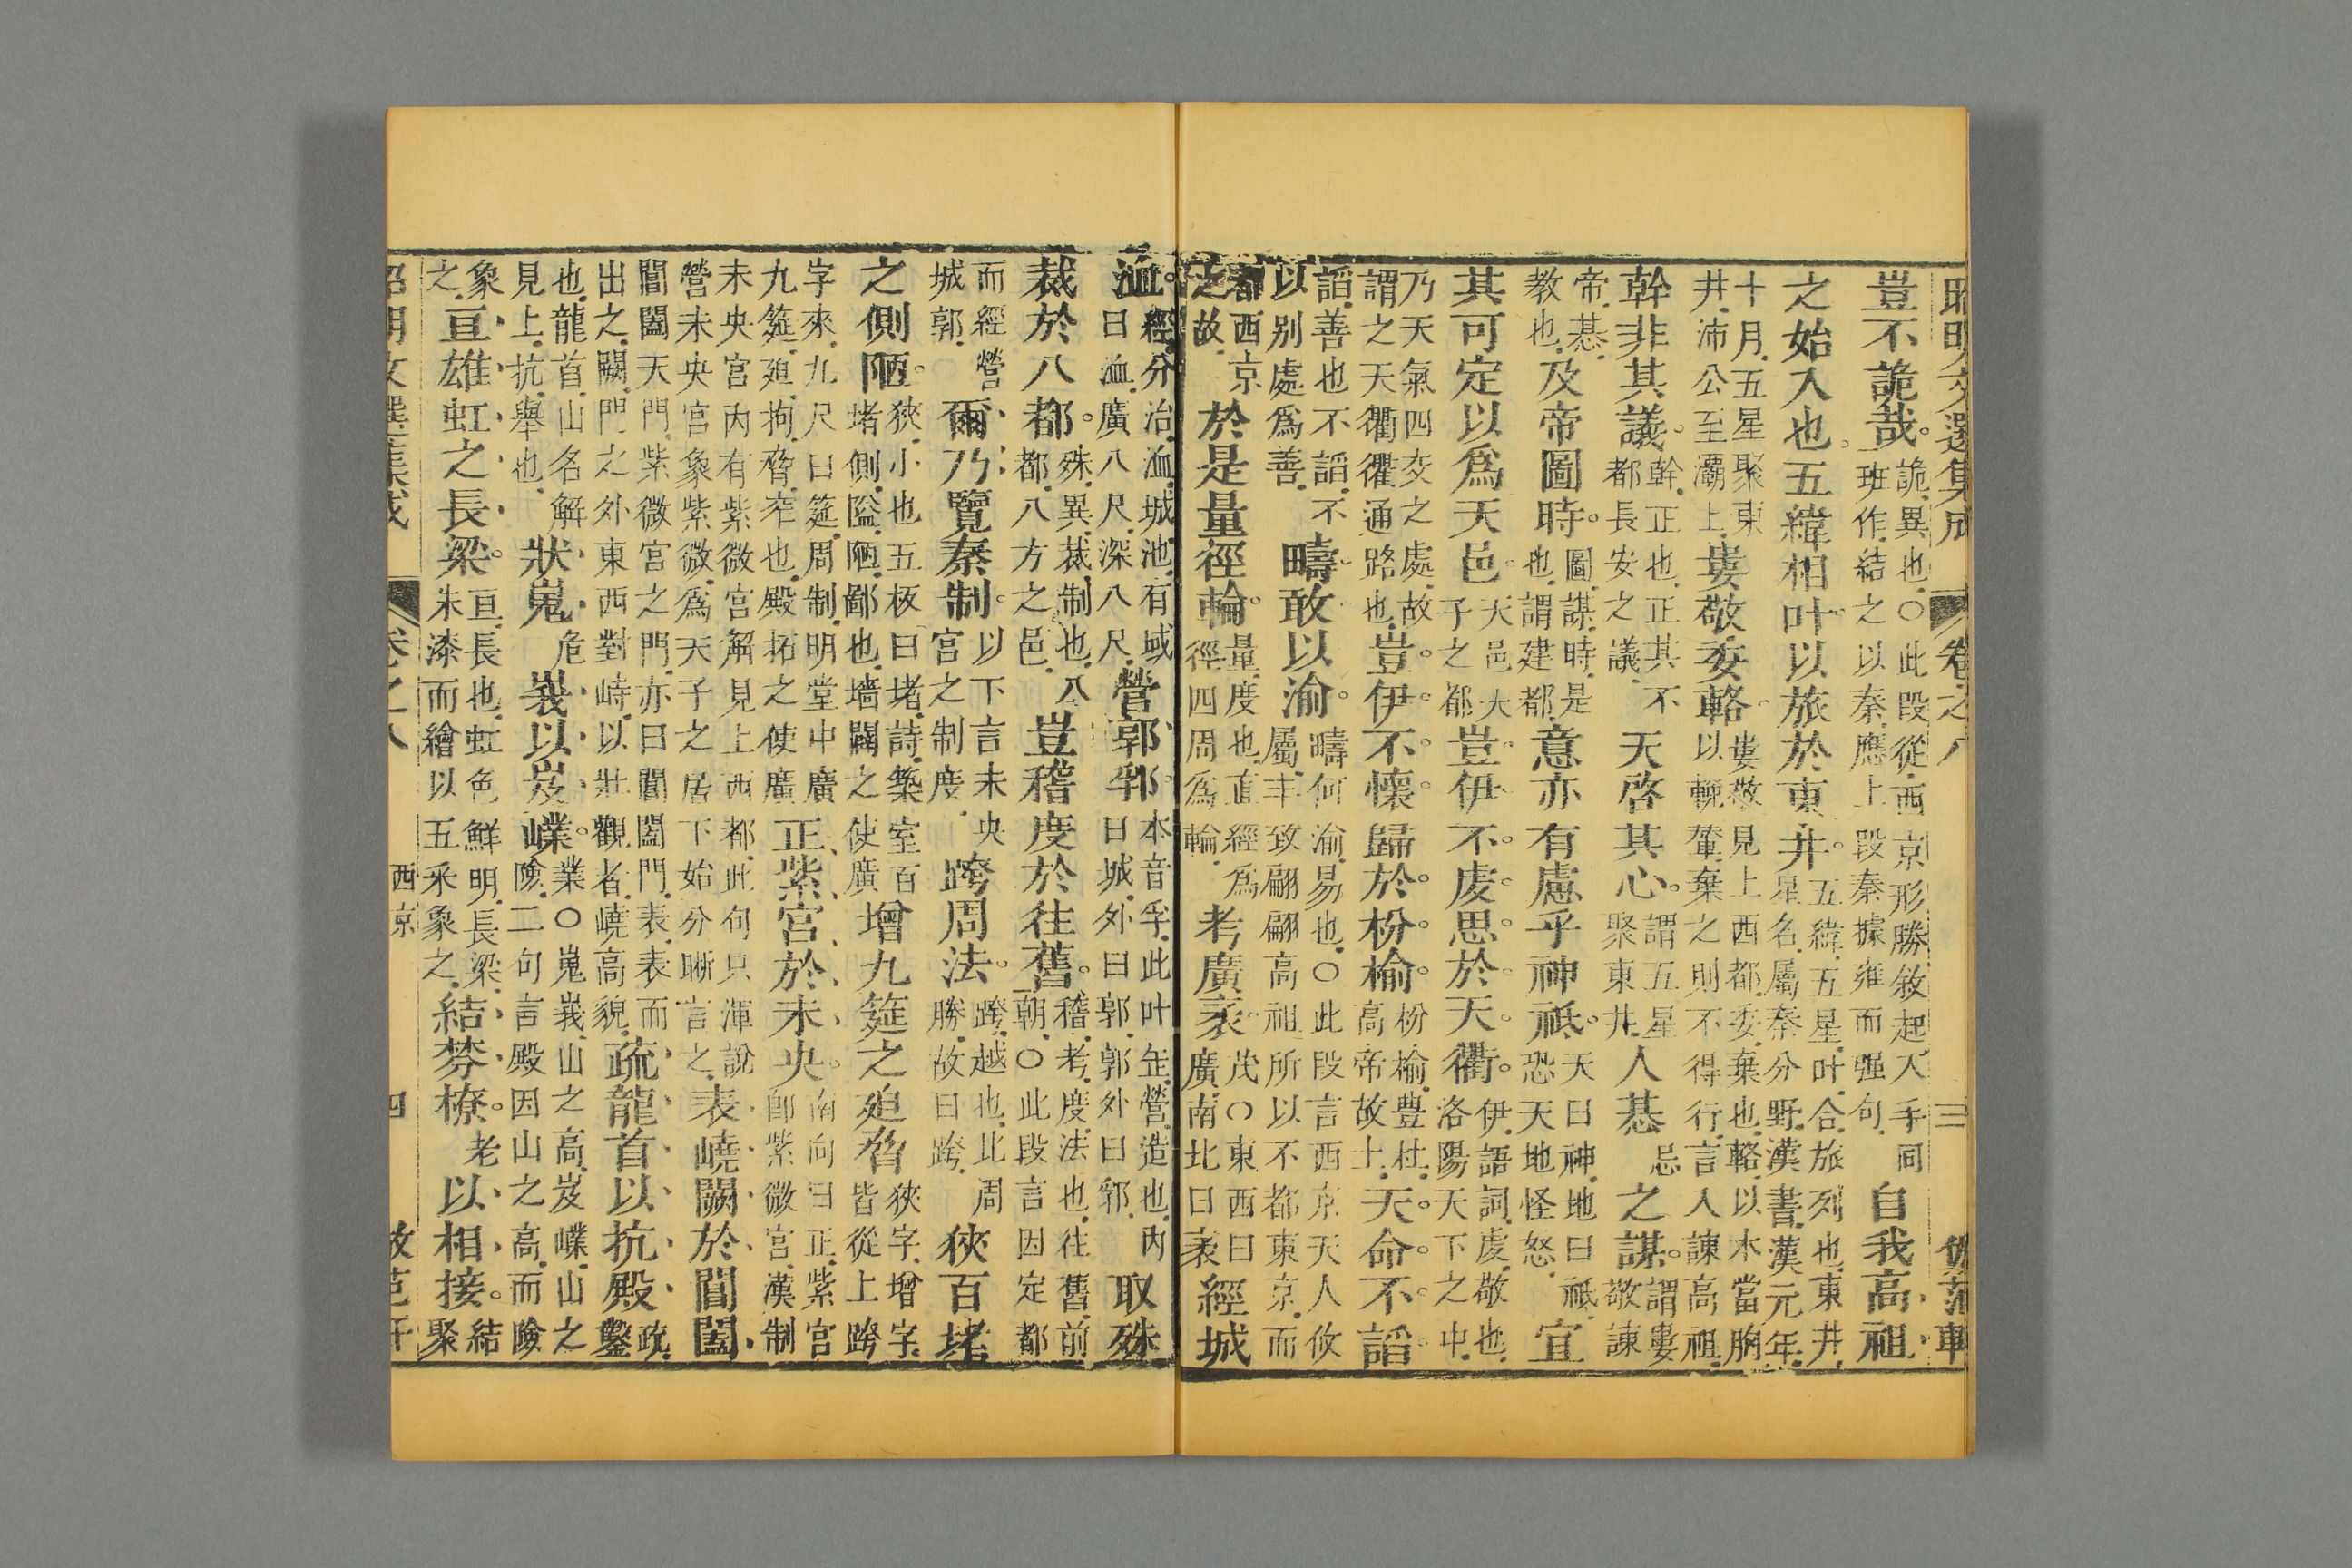 昭明文選集成 卷之八 三 傚范軒
豈不詭哉詭異也○此段從西京形勝敘起入手同班作結之以秦應上段秦據雍而强句自我高祖
之始入也五緯相叶以旅於東井五緯五星叶合旅列也東井星名屬秦分野漢書漢元年
十月五星聚東井沛公至灞上婁敬委輅婁敬見上西都委棄也輅以木當胸以輓輦棄之則不得行言入諫高祖
幹非其議幹正也正其不都長安之議天啓其心謂五星聚東井人惎忌之謀謂婁敬諫
帝惎教也及帝圖時圖謀時是也謂建都意亦有慮乎神祗天曰神地曰祗恐天地怪怒宜
其可定以爲天邑天邑大子之都豈伊不虔思於天衢伊語詞虔敬也洛陽天下之中
乃天氣四交之處故謂之天衢衢通路也豈伊不懷歸於枌榆枌榆豐社高帝故土天命不謟
謟善也不謟不以别處爲善疇敢以渝疇何渝易也○此段言西京天人攸屬丰致翩翩高祖所以不都東京而
都西京之故於是量徑輪量度也直經爲徑四周爲輪考廣袤茂○東西曰廣南北曰袤經城
洫經分治洫城池有域曰洫廣八尺深八尺營郭郛本音孚此叶缶營造也内曰城外曰郭郭外曰郛取殊
裁於八都殊異裁制也八都八方之邑豈稽度於往舊稽考度法也往舊前朝○此段言因定都
而經營城郭爾乃覽秦制以下言未央宮之制度跨周法跨越也比周勝故曰跨狹百堵
之側陋狹小也五板曰堵詩築室百堵側隘陋鄙也墻闢之使廣增九筵之廹脅狹字增字皆從上跨
字來九尺曰筵周制明堂中廣九筵廹拘脅窄也殿拓之使廣正紫宮於未央南向曰正紫宮卽紫微宮漢制
未央宮内有紫微宮解見上西都此句只渾說營未央宮象紫微爲天子之居下始分晰言之表嶢闕於閶闔
閶闔天門紫微宮之門亦曰閶闔門表表而出之闕門之外東西對峙以壯觀者嶢高貌疏龍首以抗殿疏鑿
也龍首山名解見上抗舉也狀嵬危峩以岌嶫業○嵬峩山之高岌嶫山之險二句言殿因山之高而險
象之亘雄虹之長梁亘長也虹色鮮明長梁朱漆而繪以五采象之結棼橑老以相接結聚
昭明文選集成 卷之八 西京 四 傚范軒